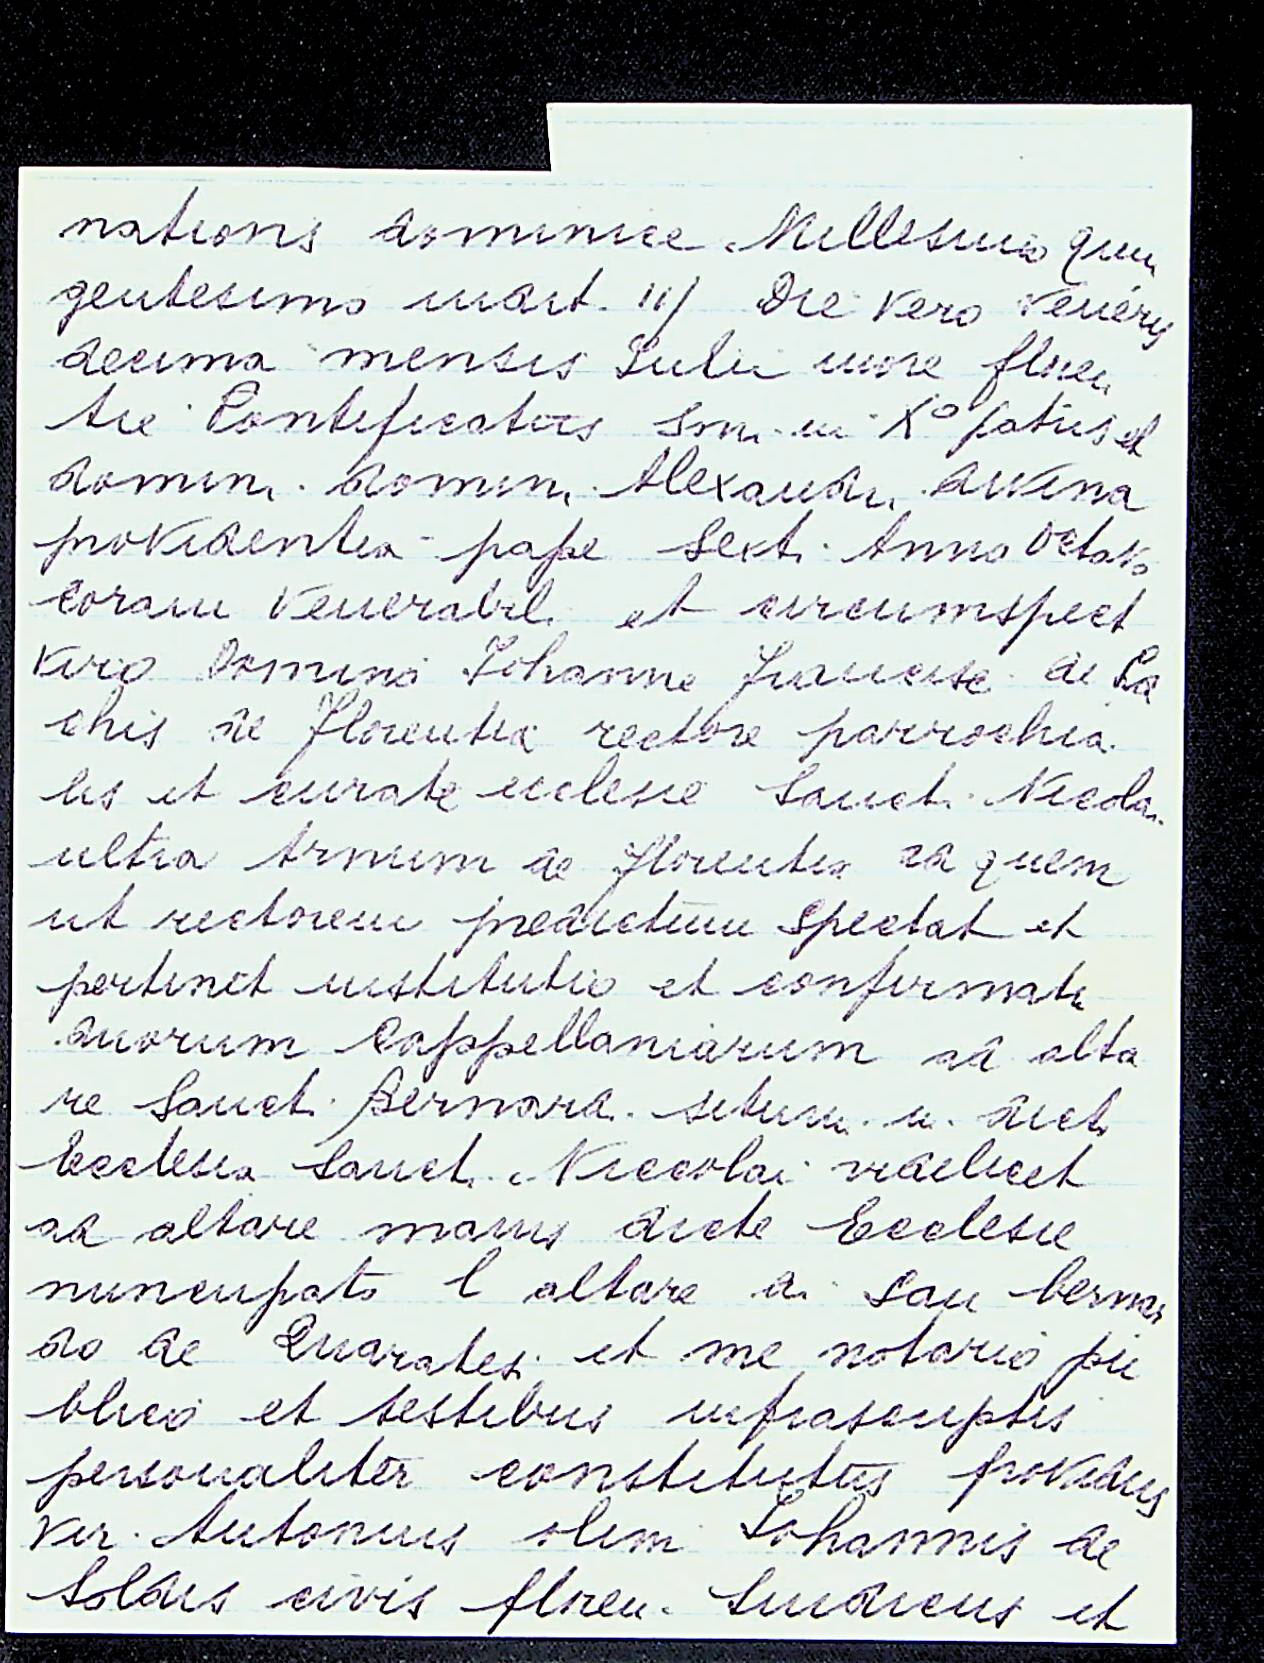 nationis dominice Millesimo quin
gentesimo indict. iij Die vero veneris
decima mensis Iulii more floren
tie Pontificatus Smi. in Xo patris et
domini. domini. Alexandri. divina
providentia pape Sexti. Anno Octavo
coram venerabili. et circumspect
viro Domino Iohanne Francisc. de
chis de Florentia rectore parrochia
lis et curate ecclesie Sancti. Nicolai.
ultra Arnum de Florentia ad quem
ut rectorem predictum spectat et
pertinet institutio et confirmati
duorum Cappellaniarum ad alta
re Sancti. Bernard. situm. in. dicta
Ecclesia Sancti. Niccolai videlicet
ad altare maius dicte Ecclesie
nuncupato l altare di San bernar
do de Quaratesi et me notario pu
blico et testibus infrascriptis
personaliter constitutus providus
vir. Antonius olim Iohannis de
Soldis civis floren. Sindicus et